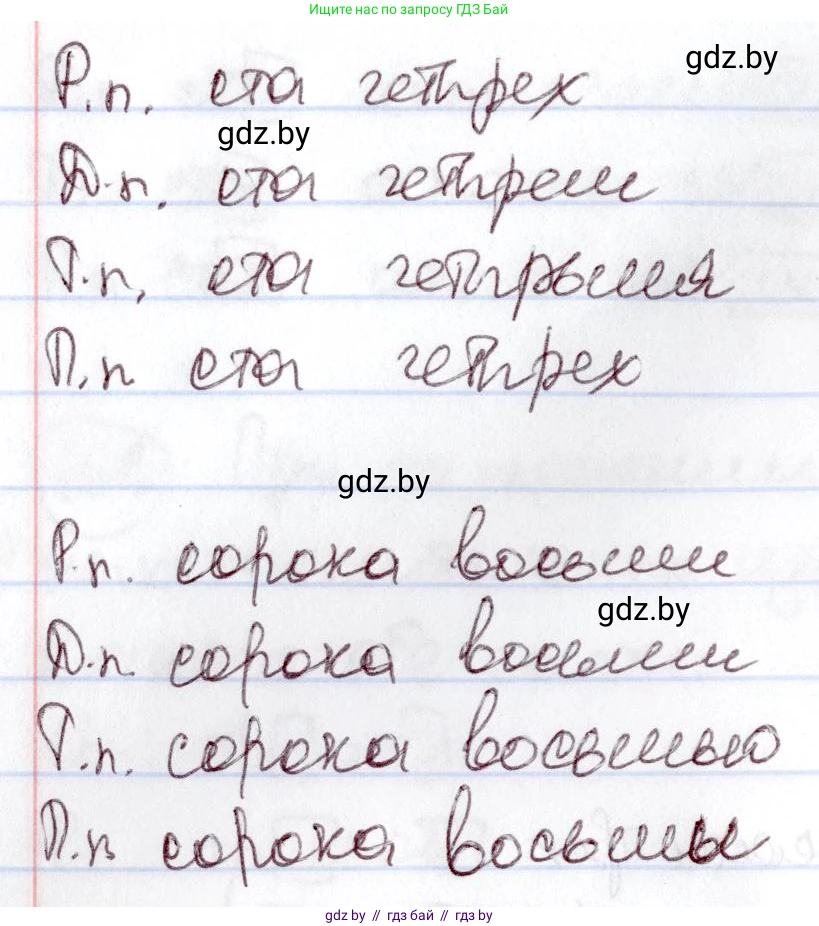 Ищите нас по запросу ГДЗ Бай
gdz.by
Р.п. ста четырех
gdz.by
Д.п. ста четырем
Т.п. ста четырьмя
П.п ста четырех
gdz.by
Р.п. сорока восьми
gdz.by
Д.п. сорока восьми
Т.п. сорока восьмью
П.п сорока восьмы
gdz.by // гдз бай // гдз by